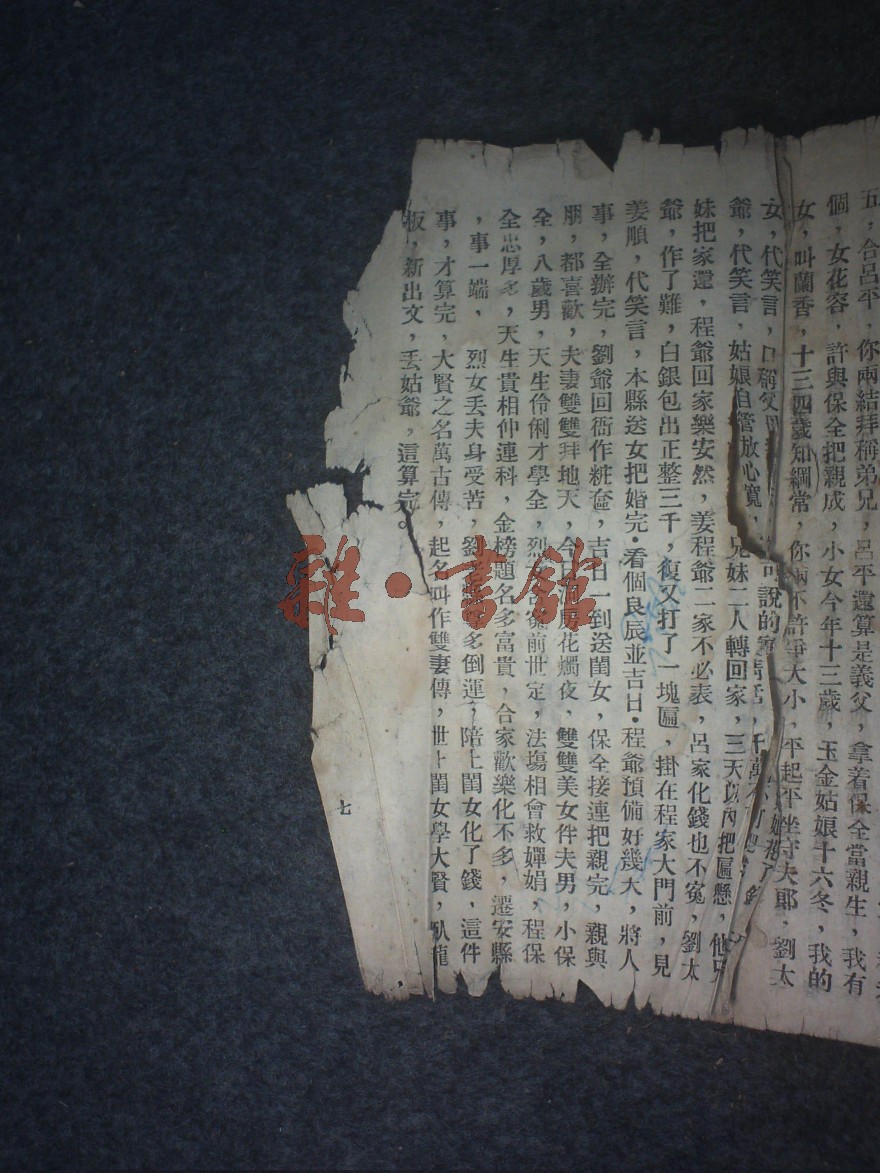 五，合呂平，你兩結拜稱弟兄，呂平還算是義父，拿着保全當親生，我有
個，女花容，許與保全把親成，小女今年十三歲，玉金姑娘十六冬，我的
女，叫蘭香，十三四歲知綱常，你兩不許爭大小，平起平坐守夫郎，劉太
女，代笑言，口稱父
爺，代笑言，姑娘自管放心寬，兄妹二人轉回家，三天以內把匾懸，他兄
妹把家還，程爺回家樂安然，姜程爺二家不必表，呂家化錢也不寃，劉太
爺，作了難，白銀包出正整三千，復又打了一塊匾，掛在程家大門前，見
姜順，代笑言，本縣送女把婚完·看個良辰並吉日·程爺預備好幾大，將人
事，全辦完，劉爺回衙作粧奩，吉日一到送閨女，保全接連把親完，親與
朋，都喜歡，夫妻雙雙拜地天，今日洞房花燭夜，雙雙美女伴夫男，小保
全，八歲男，天生伶俐才學全，烈女前世定，法塲相會救嬋娟，程保
全忠厚多，天生貴相仲連科，金榜題名多富貴，合家歡樂化不多，遷安縣
，事一端，烈女丢夫身受苦，劉多倒運，陪上閨女化了錢，這件
事，才算完，大賢之名萬古傳，起名叫作雙妻傳，世上閨女學大賢，臥龍
板，新出文，丢姑爺，這算完。
七
雜·書館